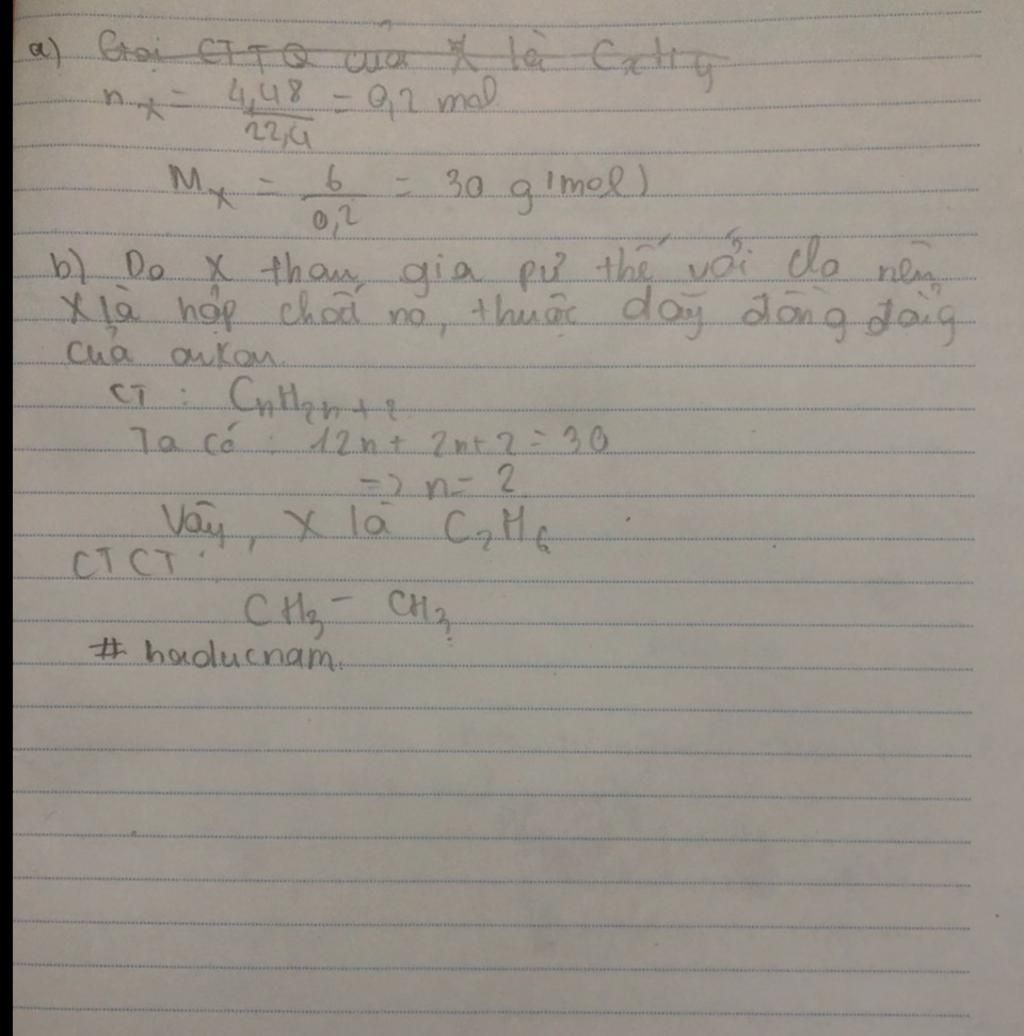 a) Gọi CTTQ của X là CxHy
nX = 4,48/22,4 = 0,2 mol
MX = 6/0,2 = 30 g/mol)
b) Do X tham gia pứ thế với clo nên
X là hợp chất no, thuộc dãy đồng đẳng
của ankan.
CT : CnH2n+2
Ta có : 12n + 2n+2 = 30
=> n = 2
Vậy, X là C2H6
CTCT :
CH3 - CH3
# haducnam.